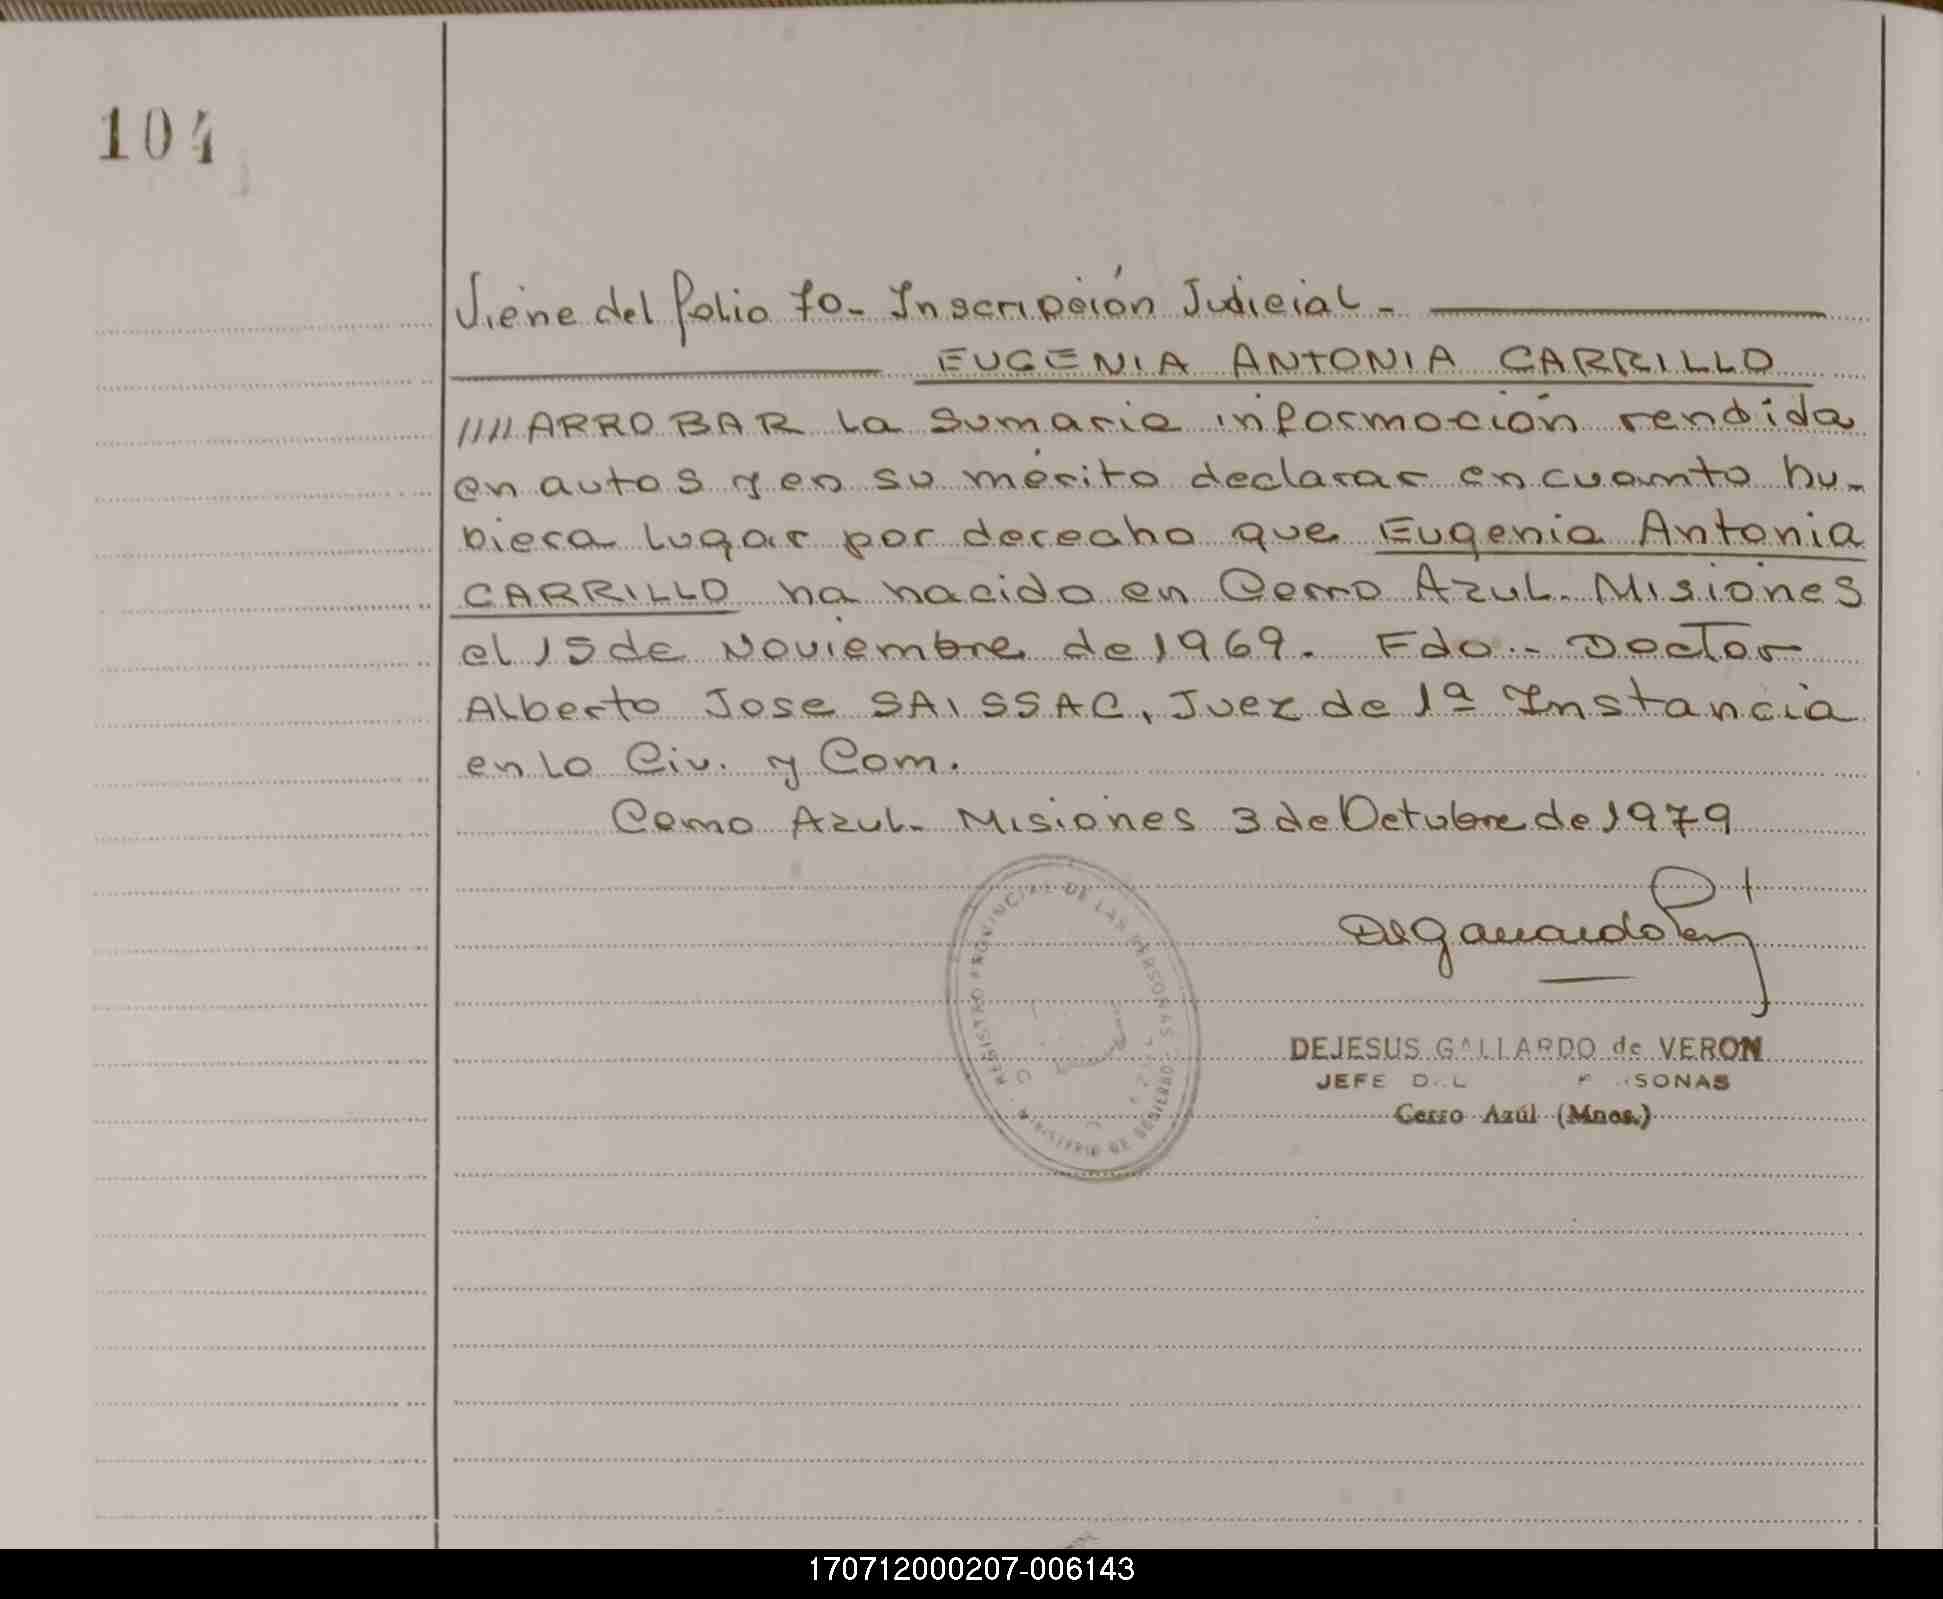 104
Viene del folio 70- Inscripción Judicial-
EUGENIA ANTONIA CARRILLO
///// ARROBAR la sumaria información rendida
en autos y en su mérito declarar en cuanto hu-
biera lugar por derecho que Eugenia Antonia
CARRILLO ha nacido en Cerro Azul- Misiones
el 15 de Noviembre de 1969. Fdo.- Doctor
Alberto Jose SAISSAC, Juez de 1ª Instancia
en lo Civ. y Com.
Cerro Azul- Misiones 3 de Octubre de 1979
REGISTRO PROVINCIAL DE LAS PERSONAS
MINISTERIO DE GOBIERNO
DEJESUS GALLARDO de VERON
JEFE D L SONAS
Cerro Azúl (Mnes.)
170712000207-006143